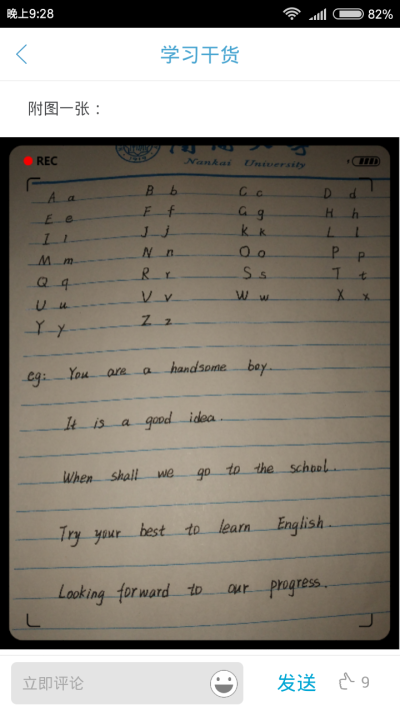 晚上9:28 82%
学习干货
附图一张：
REC
南开大学
Nankai University
A a B b C c D d
E e F f G g H h
I i J j K k L l
M m N n O o P p
Q q R r S s T t
U u V v W w X x
Y y Z z
eg: You are a handsome boy.
It is a good idea.
When shall we go to the school.
Try your best to learn English.
Looking forward to our progress.
立即评论 发送 9